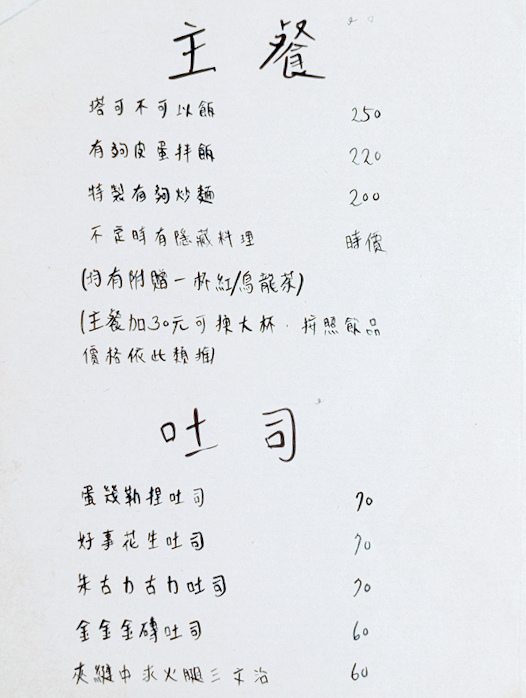 主餐
塔可不可以飯 250
有夠皮蛋拌飯 220
特製有夠炒麵 200
不定時有隱藏料理 時價
(均有附贈一杯紅/烏龍茶)
(主餐加30元可換大杯．按照飲品
價格依此類推)
吐司
蛋幾勒捏吐司 70
好事花生吐司 70
朱古力古力吐司 70
金金金磚吐司 60
夾縫中求火腿三文治 60